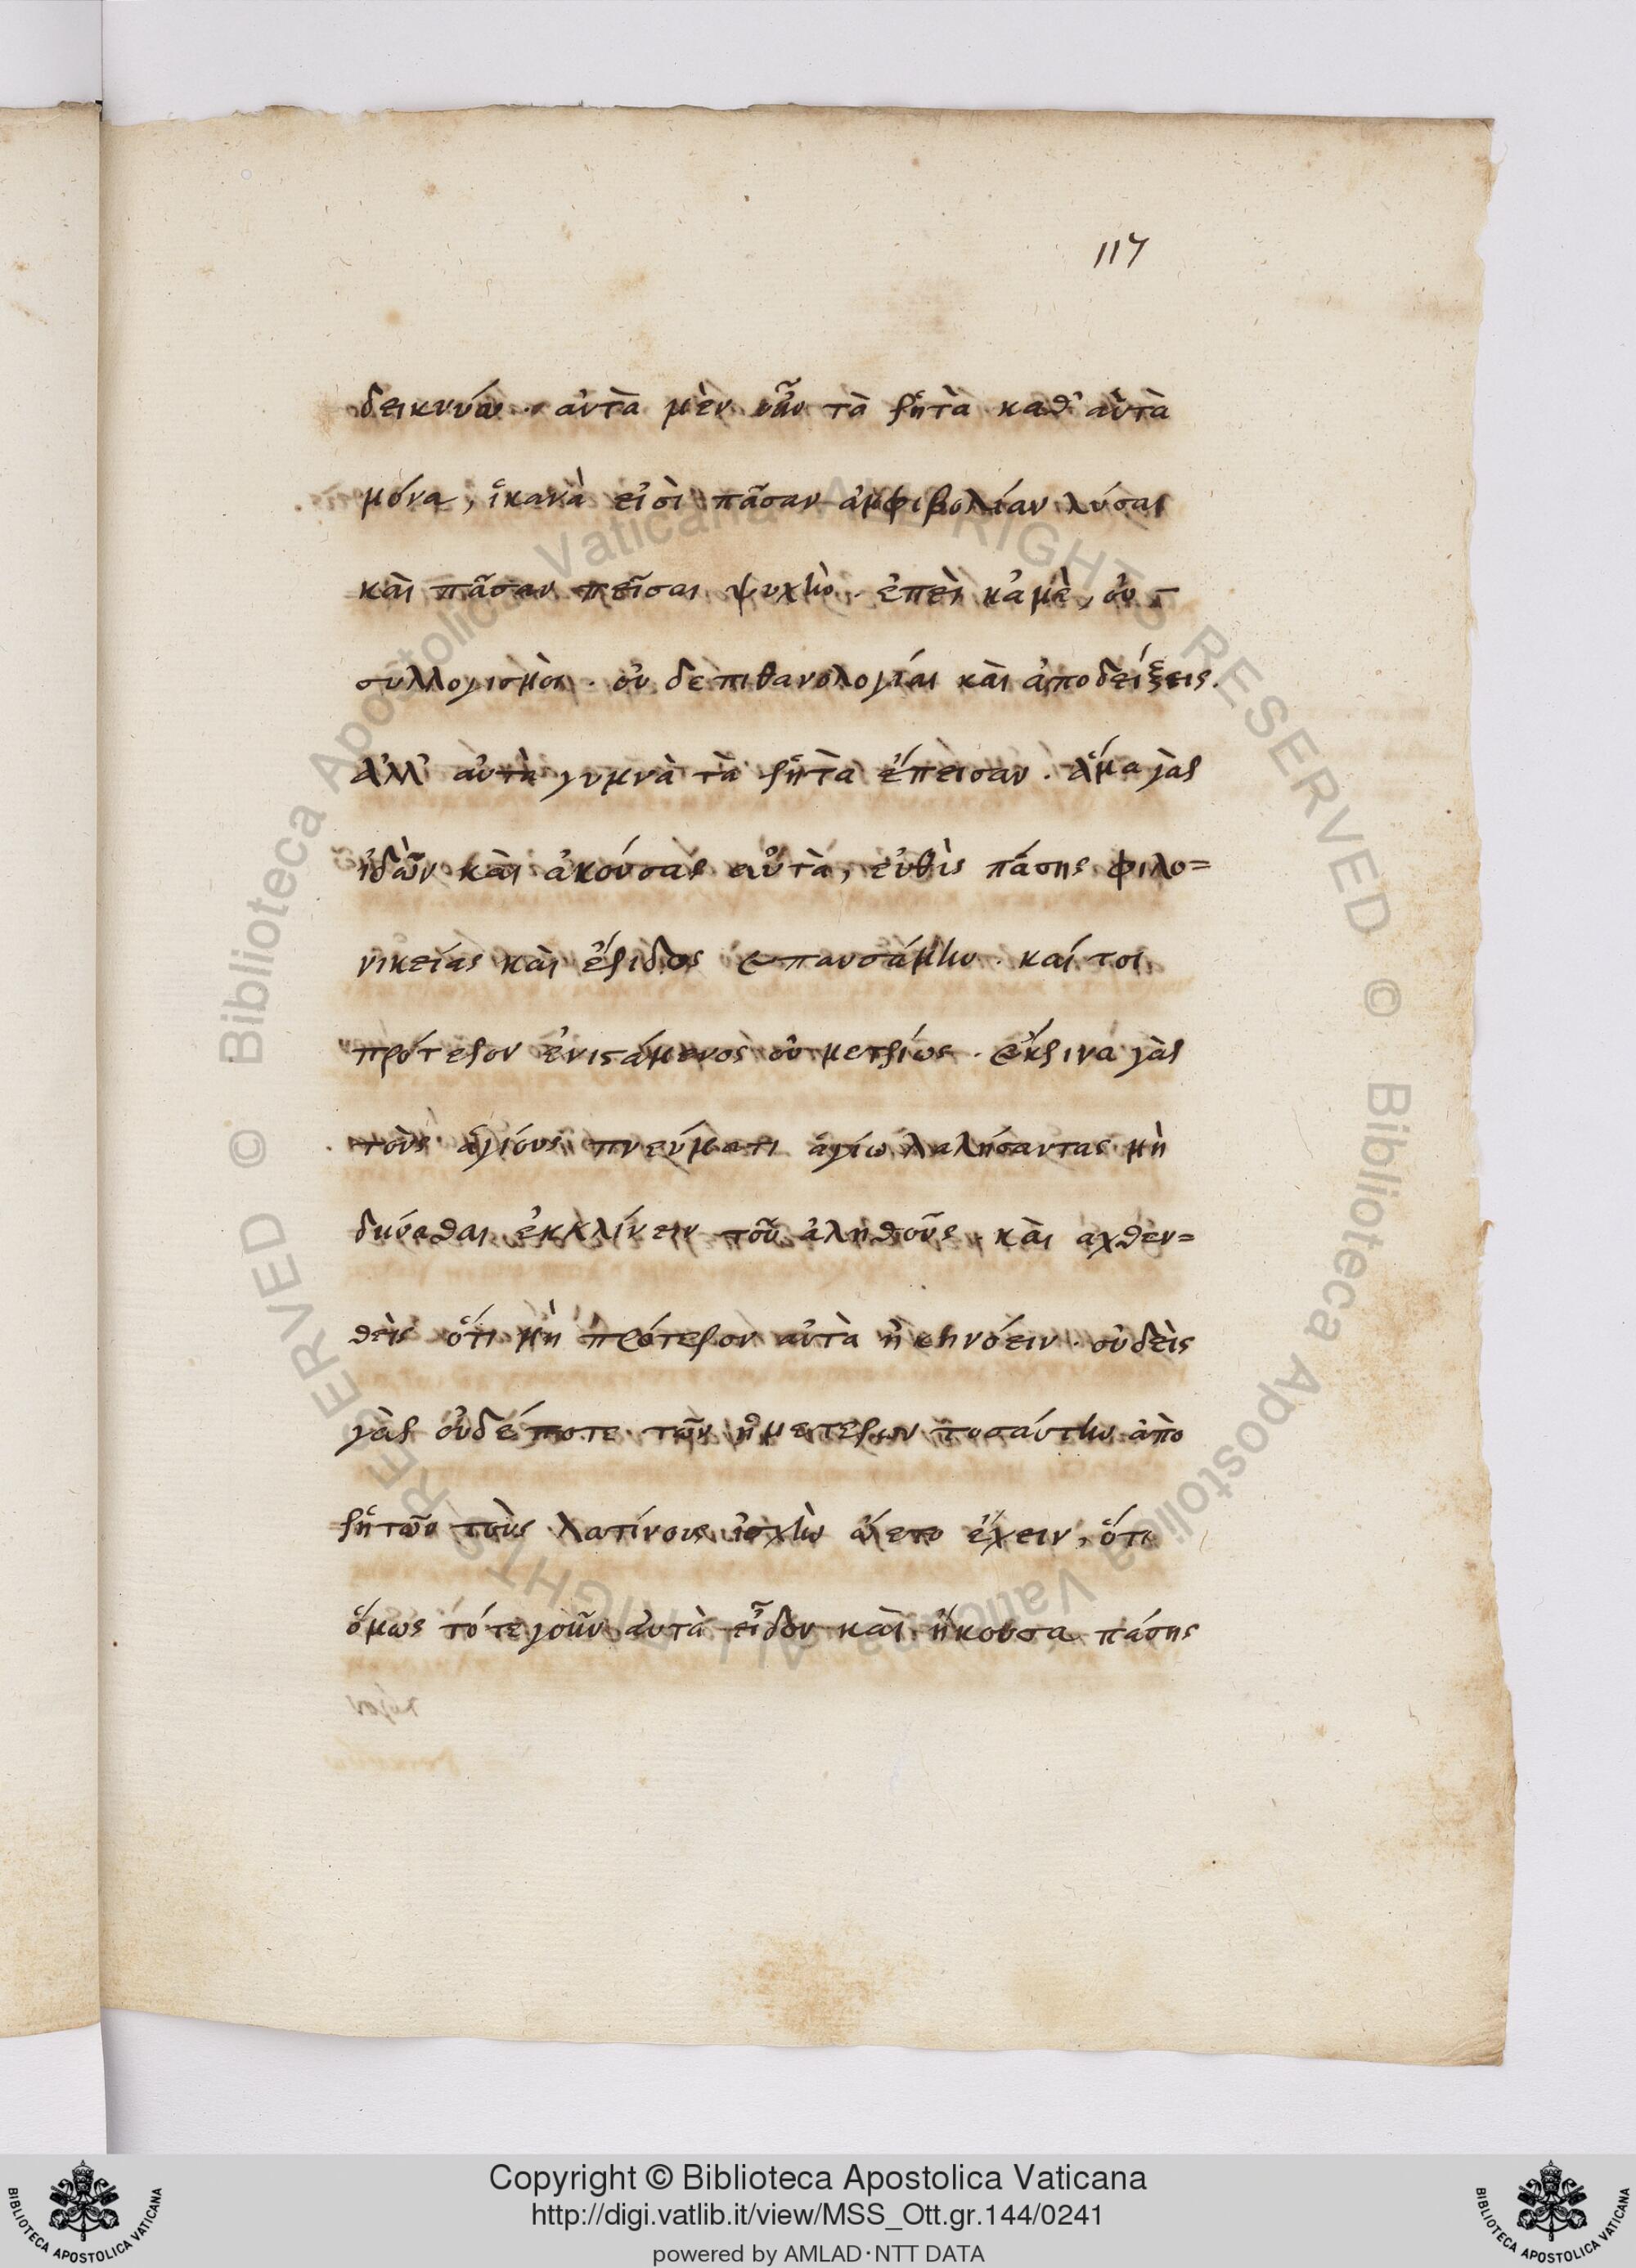 117
δεικνύω. αὐτὰ μὲν οὖν τὰ ῥητὰ καθ' αὑτὰ
μόνα, ἱκανὰ εἰσὶ πᾶσαν ἀμφιβολίαν λύσαι
καὶ πᾶσαν πεῖσαι ψυχὴν. ἐπεὶ κἀμὲ, οὐ
συλλογισμὸι. οὐ δὲ πιθανολογίαι καὶ ἀποδείξεις.
ἀλλ' αὐτὰ γυμνὰ τὰ ῥητὰ ἔπεισαν. ἅμα γὰρ
ἰδὼν καὶ ἀκούσας αὐτὰ, εὐθὺς πάσης φιλο=
νικείας καὶ ἔριδος ἐπαυσάμην. καί τοι
πρότερον ἐνιστάμενος οὐ μετρίως. ἔκρινα γὰρ
τοὺς ἁγίους πνεύματι ἁγίω λαλήσαντας μὴ
δύνασθαι ἐκκλίνειν τοῦ ἀληθοῦς. καὶ αχθεν=
θεὶς ὅτι μὴ πρότερον αὐτὰ ἠκηνόειν. οὐδεὶς
γὰρ οὐδέποτε τῶν ἡμετέρων τοσαύτην ἀπὸ
ῥητῶν τοὺς λατίνους ἰσχὺν ὤετο ἔχειν, ὅτι
ὅμως τότε γοῦν αὐτὰ εἶδον καὶ ἤκουσα πάσης
Copyright © Biblioteca Apostolica Vaticana
http://digi.vatlib.it/view/MSS_Ott.gr.144/0241
powered by AMLAD·NTT DATA